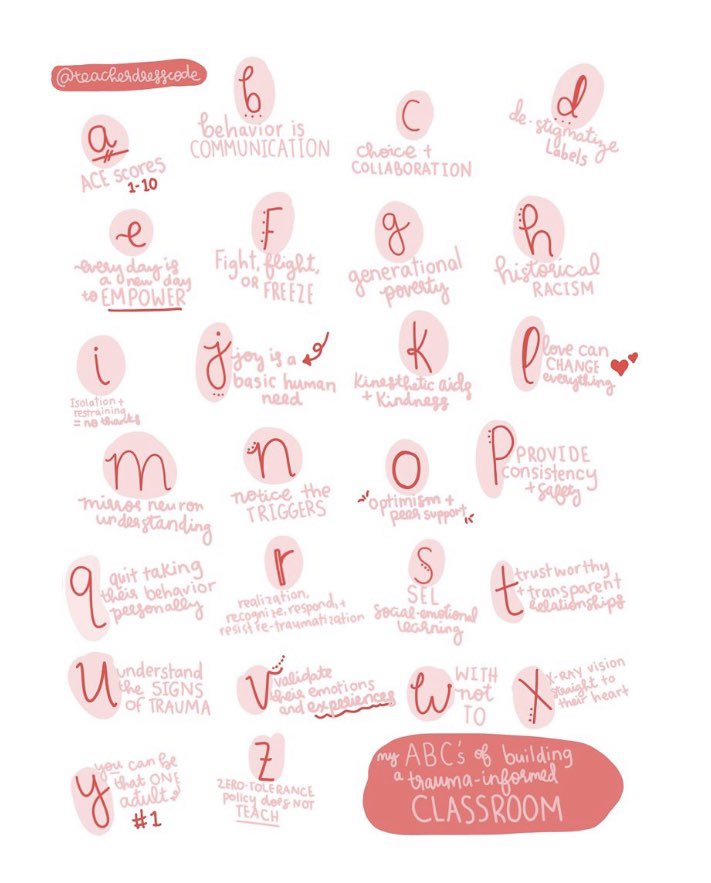 @teacherdresscode
a
ACE scores
1-10
b
behavior is
COMMUNICATION
c
choice +
COLLABORATION
d
de-stigmatize
Labels
e
every day is
a new day
to EMPOWER
F
Fight, flight,
OR FREEZE
g
generational
poverty
h
historical
RACISM
i
Isolation +
restraining
= no thanks
j
joy is a
basic human
need
k
Kinesthetic aids
+ Kindness
l
love can
CHANGE
everything
m
mirror neuron
understanding
n
notice the
TRIGGERS
o
optimism +
peer support
P
PROVIDE
consistency
+ safety
q
quit taking
their behavior
personally
r
realization,
recognize, respond, +
resist re-traumatization
s
SEL
social-emotional
learning
t
trustworthy
+ transparent
relationships
u
understand
the SIGNS
OF TRAUMA
v
validate
their emotions
and experiences
w
WITH
not
TO
X
X-RAY vision
straight to
their heart
y
you can be
that ONE
adult
#1
Z
ZERO-TOLERANCE
policy does NOT
TEACH
my ABC's of building
a trauma-informed
CLASSROOM